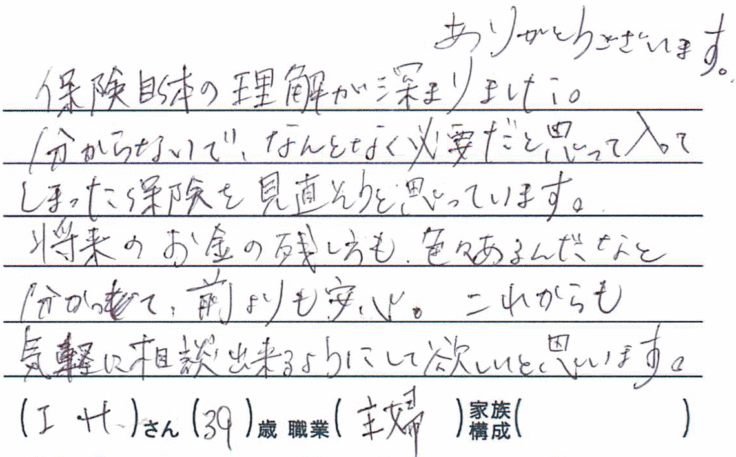 ありがとうございます。
保険自体の理解が深まりました。
分からないで、なんとなく必要だと思って入って
しまった保険を見直そうと思っています。
将来のお金の残し方も、色々あるんだなと
分かって、前よりも安心。これからも
気軽に相談出来るようにして欲しいと思います。
(I.H.)さん(39)歳 職業(主婦)家族構成( )